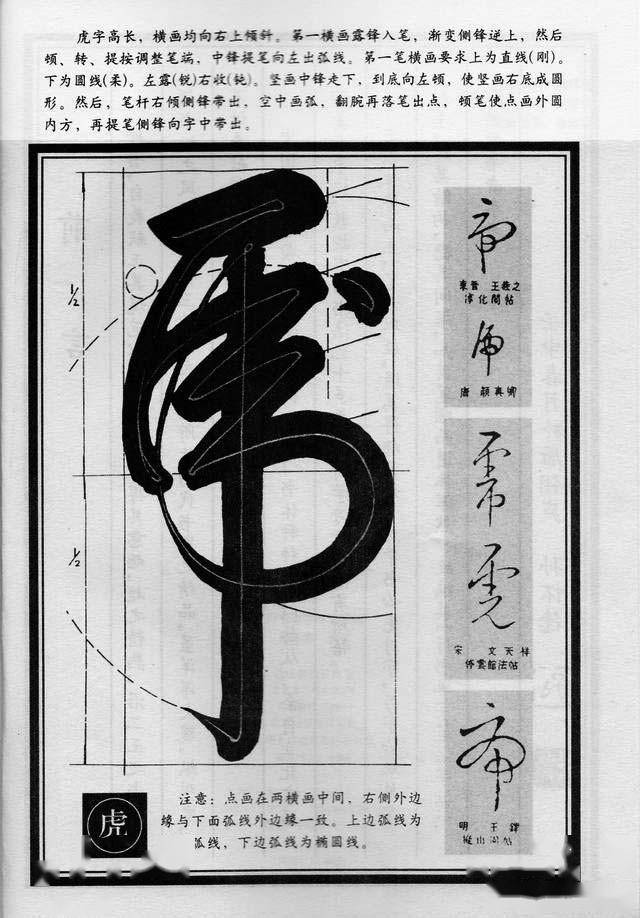 虎字高长，横画均向右上倾斜。第一横画露锋入笔，渐变侧锋逆上，然后
顿、转、提按调整笔端，中锋提笔向左出弧线。第一笔横画要求上为直线(刚)。
下为圆线(柔)。左露(锐)右收(钝)。坚画中锋走下，到底向左顿，使坚画右底成圆
形。然后，笔杆右倾侧锋带出，空中画弧，翻腕再落笔出点，顿笔使点画外圆
内方，再提笔侧锋向字中带出。
1/2
1/2
東晋 王羲之
淳化閣帖
唐 颜真卿
宋 文天祥
停雲館法帖
明 王鐸
擬山園帖
虎
注意：点画在两横画中间，右侧外边
缘与下面弧线外边缘一致。上边弧线为
弧线，下边弧线为椭圆线。